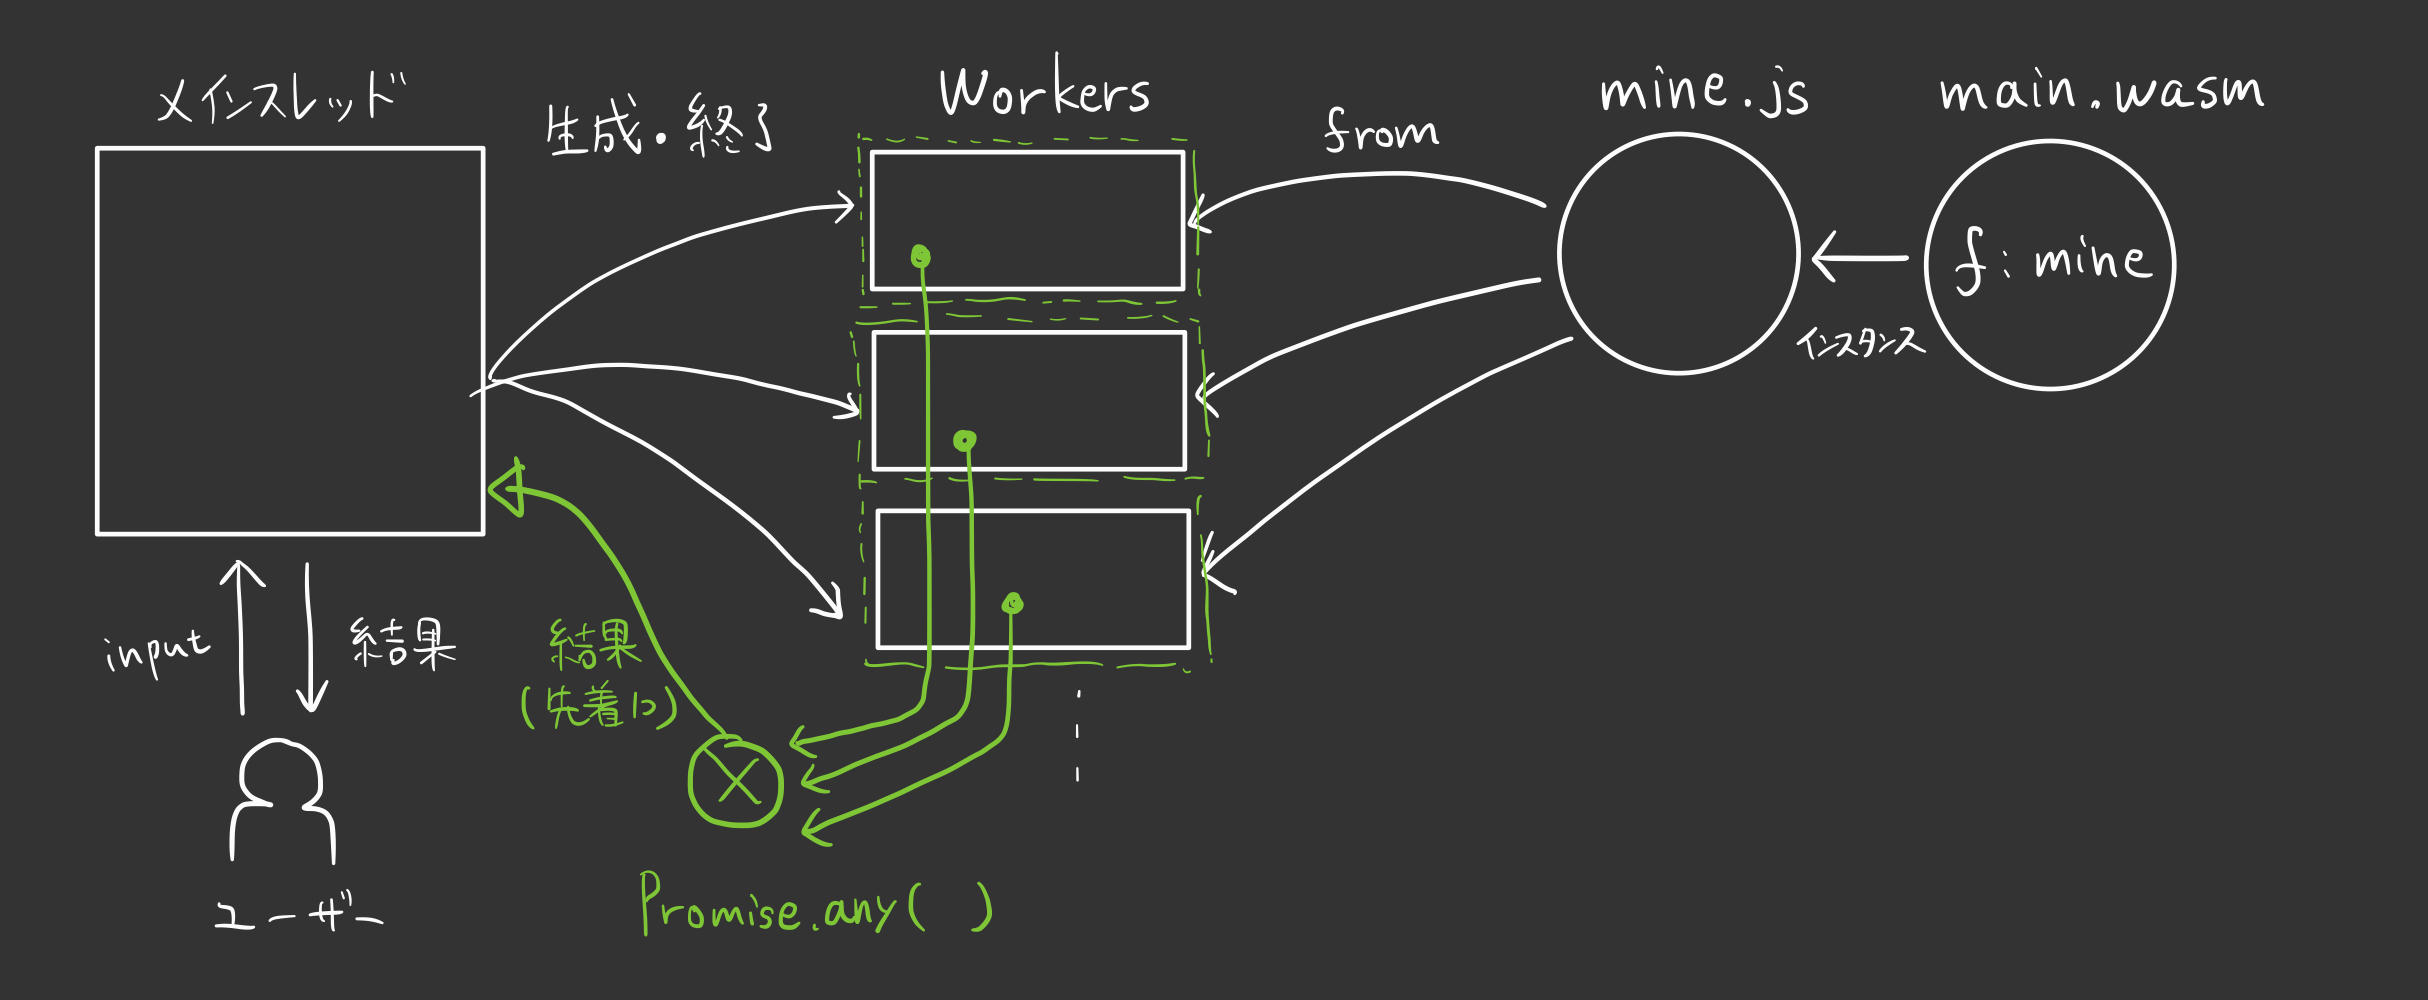 メインスレッド
生成・終了
Workers
from
mine.js
main.wasm
f: mine
インスタンス
input
結果
結果
(先着1コ)
ユーザー
Promise.any( )